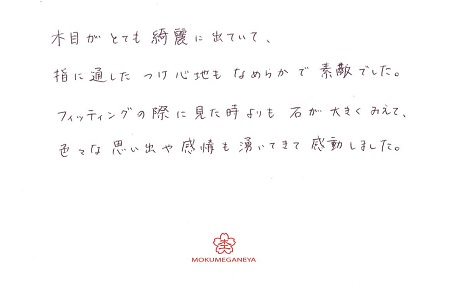 木目がとても綺麗に出ていて、
指に通したつけ心地もなめらかで素敵でした。
フィッティングの際に見た時よりも石が大きくみえて、
色々な思い出や感情も湧いてきて感動しました。
MOKUMEGANEYA